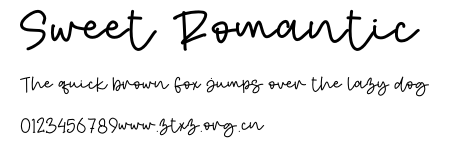 Sweet Romantic
The quick brown fox jumps over the lazy dog
0123456789www.ztxz.org.cn